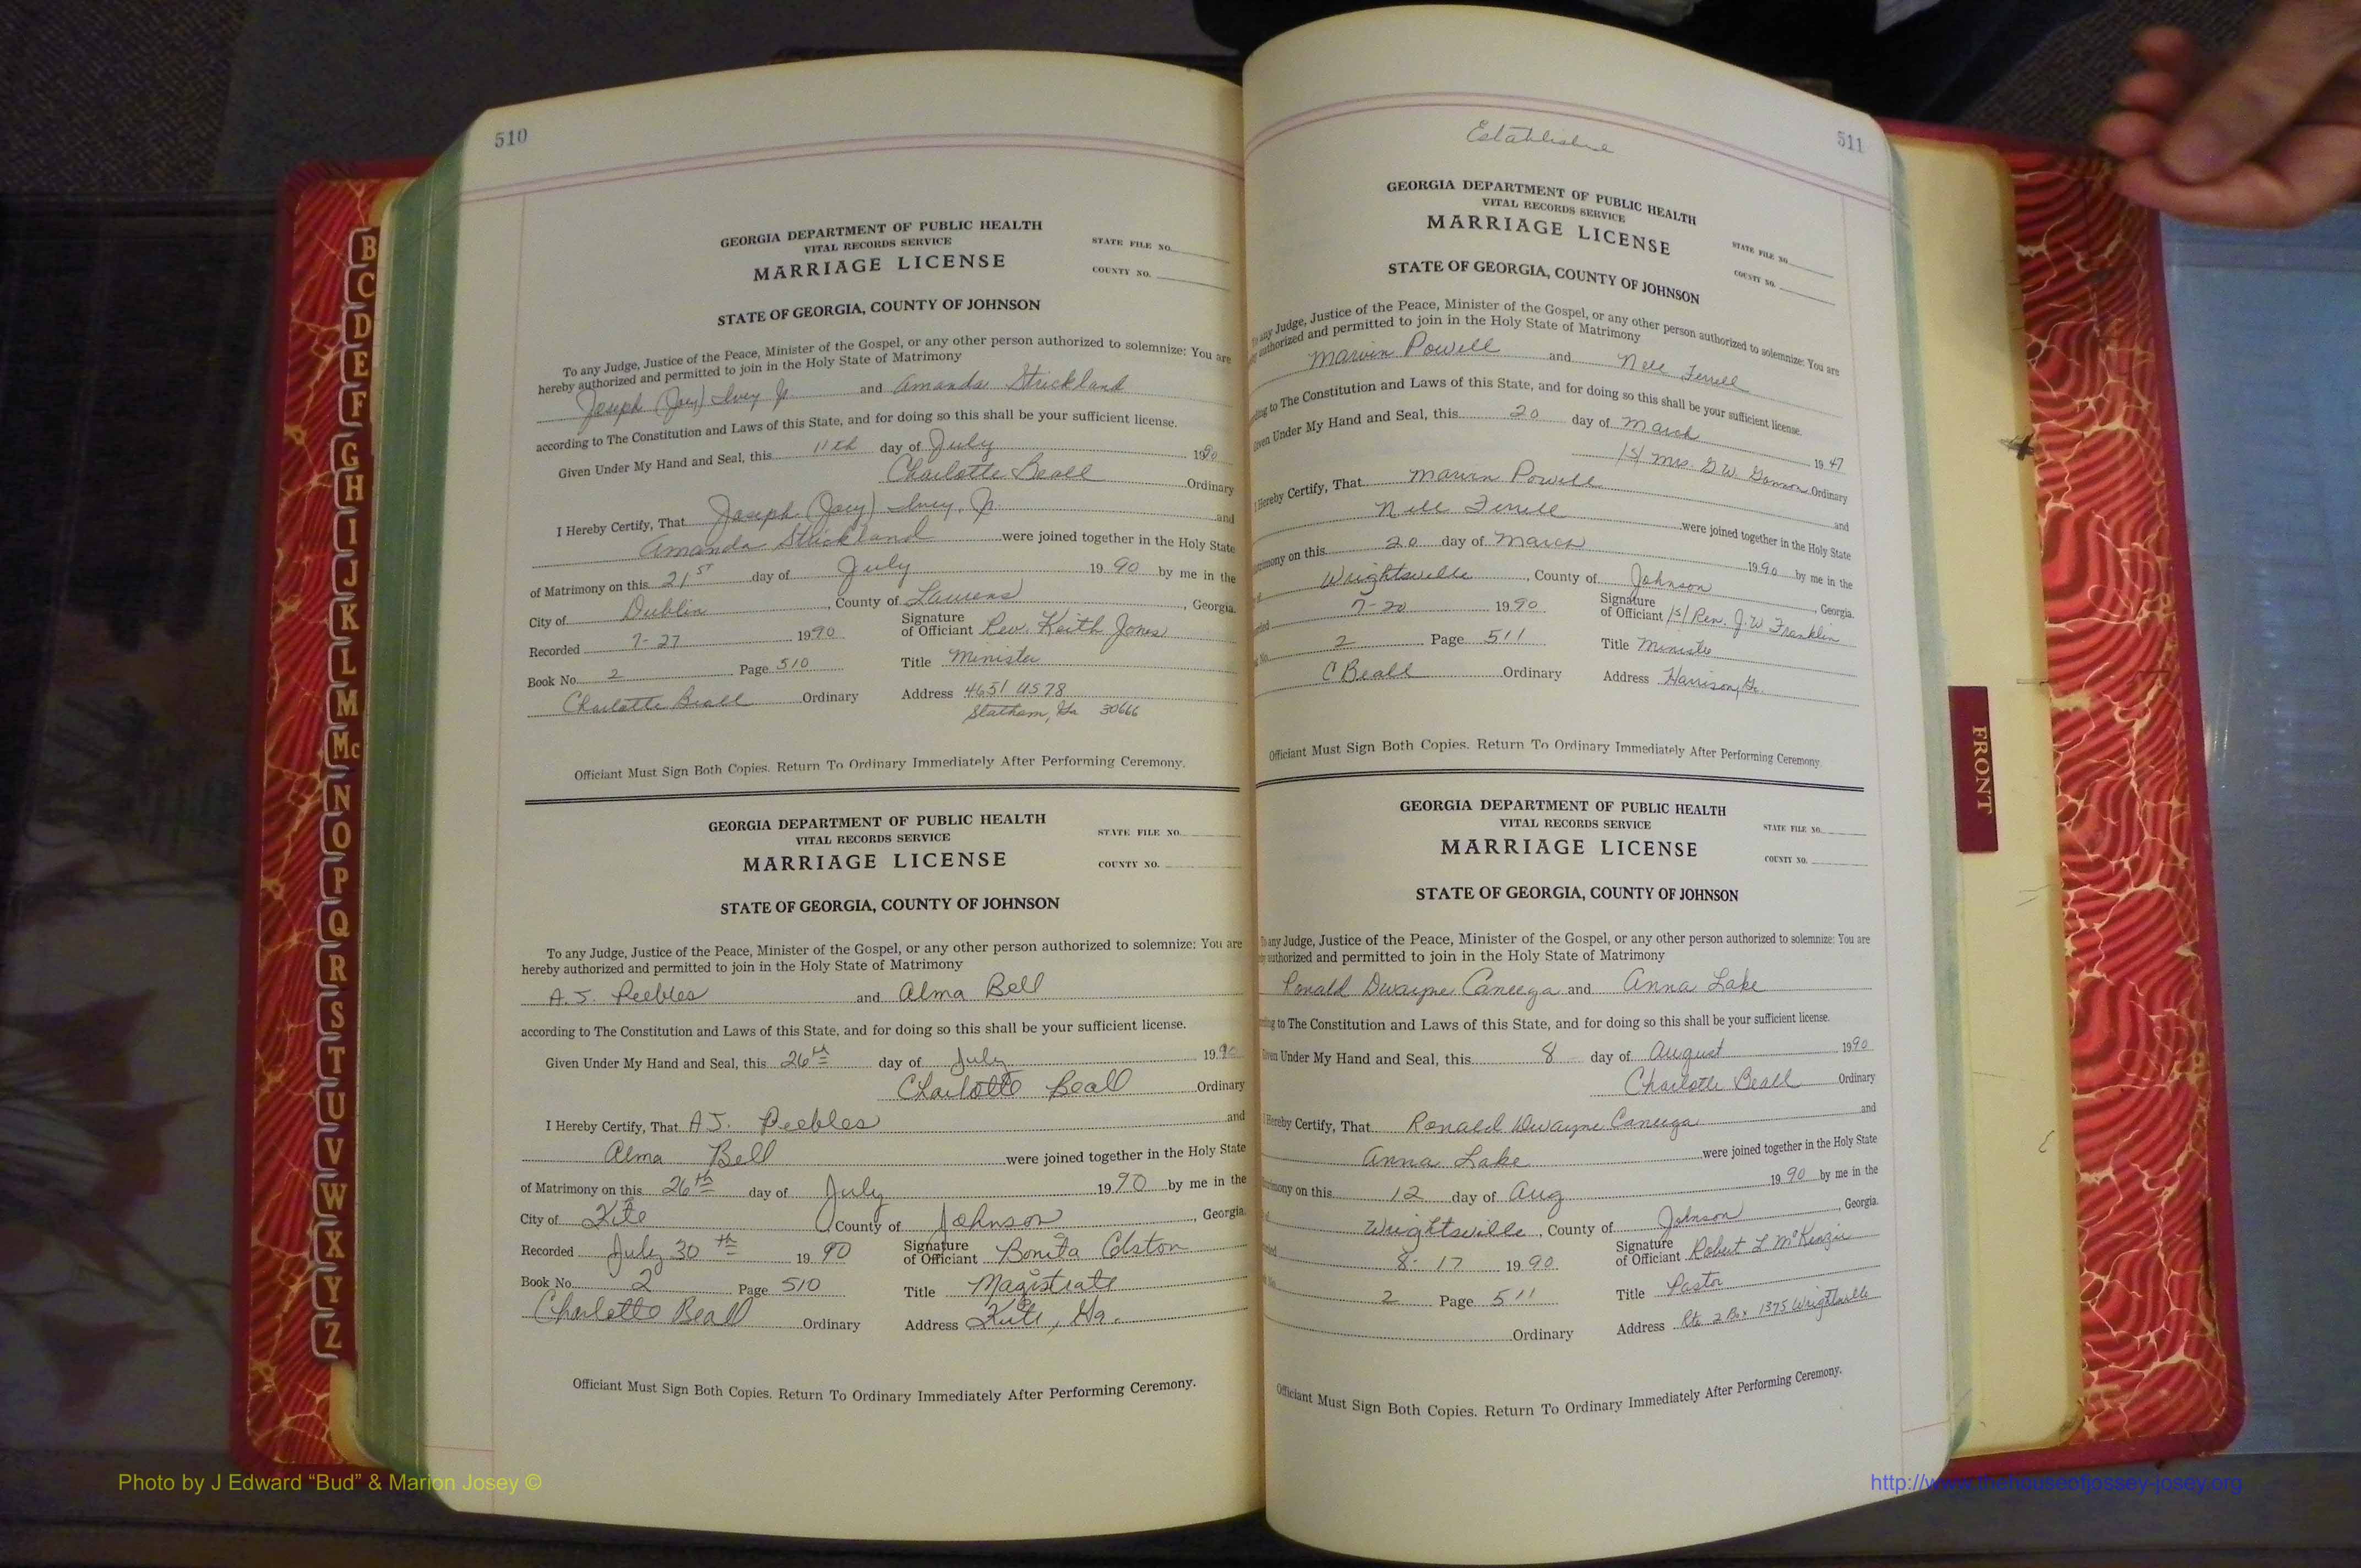 510
GEORGIA DEPARTMENT OF PUBLIC HEALTH
VITAL RECORDS SERVICE
MARRIAGE LICENSE
STATE FILE NO.
COUNTY NO.
STATE OF GEORGIA, COUNTY OF JOHNSON
To any Judge, Justice of the Peace, Minister of the Gospel, or any other person authorized to solemnize: You are
hereby authorized and permitted to join in the Holy State of Matrimony
Joseph (Joey) Ivey Jr. and Amanda Strickland
according to The Constitution and Laws of this State, and for doing so this shall be your sufficient license.
Given Under My Hand and Seal, this 11th day of July 1990
Charlotte Beall Ordinary
I Hereby Certify, That Joseph (Joey) Ivey, Jr. and
Amanda Strickland were joined together in the Holy State
of Matrimony on this 21st day of July 1990 by me in the
City of Dublin, County of Laurens, Georgia.
Recorded 7-27 1990 Signature of Officiant Rev. Keith Jones
Book No. 2 Page 510 Title Minister
Charlotte Beall Ordinary Address 4651 US 78
Statham, Ga 30666
Officiant Must Sign Both Copies. Return To Ordinary Immediately After Performing Ceremony.
GEORGIA DEPARTMENT OF PUBLIC HEALTH
VITAL RECORDS SERVICE
MARRIAGE LICENSE
STATE FILE NO.
COUNTY NO.
STATE OF GEORGIA, COUNTY OF JOHNSON
To any Judge, Justice of the Peace, Minister of the Gospel, or any other person authorized to solemnize: You are
hereby authorized and permitted to join in the Holy State of Matrimony
A.J. Peebles and Alma Bell
according to The Constitution and Laws of this State, and for doing so this shall be your sufficient license.
Given Under My Hand and Seal, this 26th day of July 1990
Charlotte Beall Ordinary
I Hereby Certify, That A.J. Peebles and
Alma Bell were joined together in the Holy State
of Matrimony on this 26th day of July 1990 by me in the
City of Kite County of Johnson, Georgia.
Recorded July 30th 1990 Signature of Officiant Bonita Colston
Book No. 2 Page 510 Title Magistrate
Charlotte Beall Ordinary Address Kite, Ga.
Officiant Must Sign Both Copies. Return To Ordinary Immediately After Performing Ceremony.
511
GEORGIA DEPARTMENT OF PUBLIC HEALTH
VITAL RECORDS SERVICE
MARRIAGE LICENSE
STATE FILE NO.
COUNTY NO.
STATE OF GEORGIA, COUNTY OF JOHNSON
To any Judge, Justice of the Peace, Minister of the Gospel, or any other person authorized to solemnize: You are
authorized and permitted to join in the Holy State of Matrimony
Marvin Powell and Nell Ferrell
to The Constitution and Laws of this State, and for doing so this shall be your sufficient license.
Given Under My Hand and Seal, this 20 day of March 1947
/s/ Mrs. G.W. Ordinary
I Hereby Certify, That Marvin Powell and
Nell Ferrell were joined together in the Holy State
on this 20 day of March 1990 by me in the
Wrightsville, County of Johnson, Georgia.
7-20 1990 Signature of Officiant /s/ Rev. J.W Franklin
2 Page 511 Title Minister
C Beall Ordinary Address Harrison, Ga.
Officiant Must Sign Both Copies. Return To Ordinary Immediately After Performing Ceremony.
GEORGIA DEPARTMENT OF PUBLIC HEALTH
VITAL RECORDS SERVICE
MARRIAGE LICENSE
STATE FILE NO.
COUNTY NO.
STATE OF GEORGIA, COUNTY OF JOHNSON
To any Judge, Justice of the Peace, Minister of the Gospel, or any other person authorized to solemnize: You are
authorized and permitted to join in the Holy State of Matrimony
Ronald Dwayne Caneega and Anna Lake
to The Constitution and Laws of this State, and for doing so this shall be your sufficient license.
Given Under My Hand and Seal, this 8 day of August 1990
Charlotte Beall Ordinary
I Hereby Certify, That Ronald Dwayne Caneega and
Anna Lake were joined together in the Holy State
on this 12 day of Aug 1990 by me in the
Wrightsville, County of Johnson, Georgia.
8-17 1990 Signature of Officiant Robert L McKenzie
2 Page 511 Title Pastor
Ordinary Address Rte 2 Box 1375 Wrightsville
Officiant Must Sign Both Copies. Return To Ordinary Immediately After Performing Ceremony.
B
C
D
E
F
G
H
I
J
K
L
M
Mc
N
O
P
Q
R
S
T
U
V
W
X
Y
Z
FRONT
Photo by J Edward “Bud” & Marion Josey ©
http://www.thehouseofjossey-josey.org